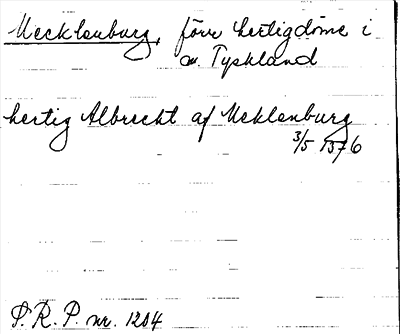 Mecklenburg, förr hertigdöme i
n. Tyskland
hertig Albrecht af Meklenburg
3/5 1376
S. R. P. nr. 1204